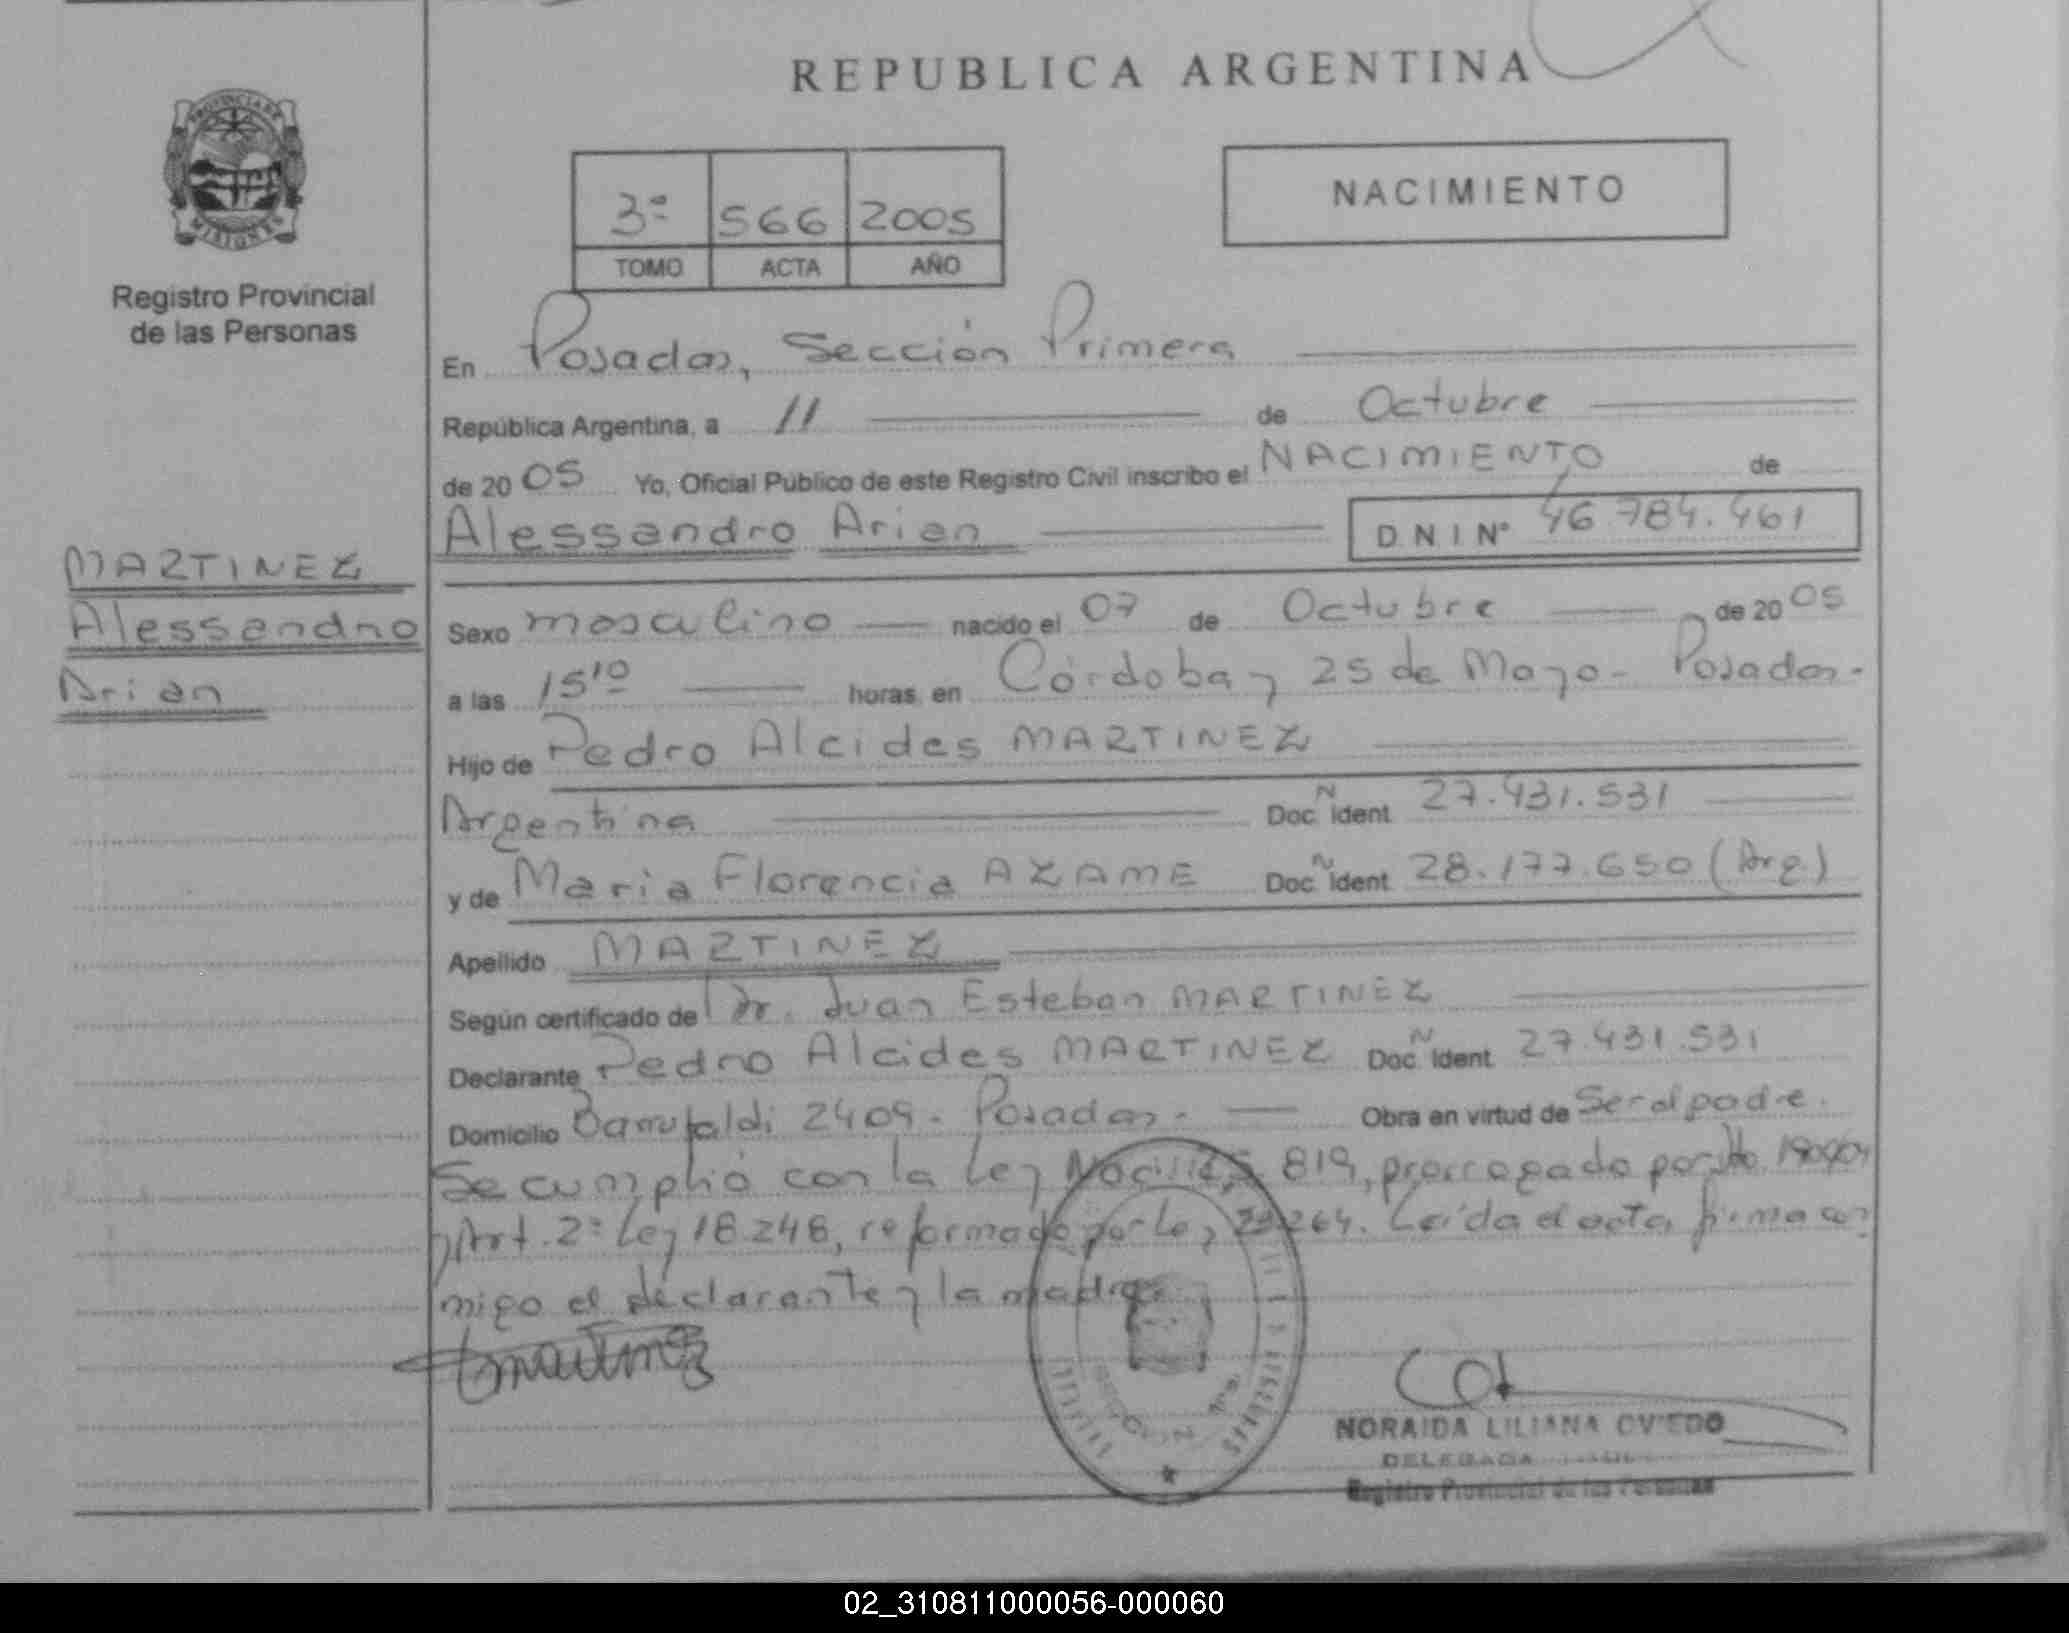 REPUBLICA ARGENTINA
PROVINCIA DE
MISIONES
Registro Provincial
de las Personas
3º 566 2005
TOMO ACTA AÑO
NACIMIENTO
En Posadas, Sección Primera
República Argentina, a 11 de Octubre
de 20 05 Yo, Oficial Público de este Registro Civil inscribo el NACIMIENTO de
Alessandro Arian D N I Nº 46.784.461
MARTINEZ
Alessandro
Arian
Sexo masculino nacido el 07 de Octubre de 20 05
a las 15¹⁰ horas, en Córdoba y 25 de Mayo - Posadas -
Hijo de Pedro Alcides MARTINEZ
Argentina Doc. N Ident 27.431.531
y de Maria Florencia AZAME Doc. N Ident 28.177.650 (Arg.)
Apellido MARTINEZ
Según certificado de Dr. Juan Esteban MARTINEZ
Declarante Pedro Alcides MARTINEZ Doc. N Ident. 27.431.531
Domicilio Barrufaldi 2409 - Posadas - Obra en virtud de Ser el padre.
Se cumplió con la Ley 819, prorrogado por
y Art. 2º Ley 18.248, reformado por Ley 23.264. Leída el acta, firma con
migo el declarante y la madre
Martinez
NORAIDA LILIANA OVIEDO
DELEGADA
Registro Provincial de las Personas
02_310811000056-000060